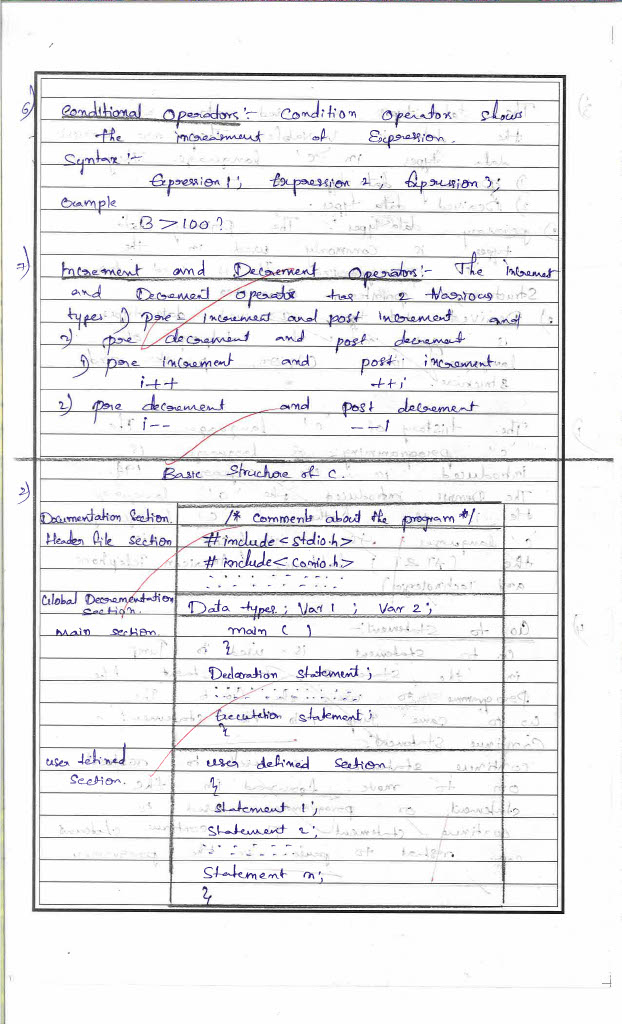 6) Conditional Operators :- Condition Operators shows
the increasment of Expression.
Syntax :-
Expression 1; Expression 2; Expression 3;
Example
B > 100 ?
7) Increment and Decrement Operators :- The Increment
and Decrement operator has 2 Various
types 1) pre increment and post increment and
2) pre decrement and post decrement
1) pre increment and post increment
i++ ++i
2) pre decrement and post decrement
i-- --i
Basic Structure of C.
2)
Documentation Section. /* comments about the program */
Header file section #include <stdio.h>
#include <conio.h>
Global Decrementation Section. Data types; Var 1; Var 2;
Main section. main ( )
{
Declaration statement;
Execution statement;
}
user defined section. user defined section
{
statement 1;
statement 2;
Statement n;
}